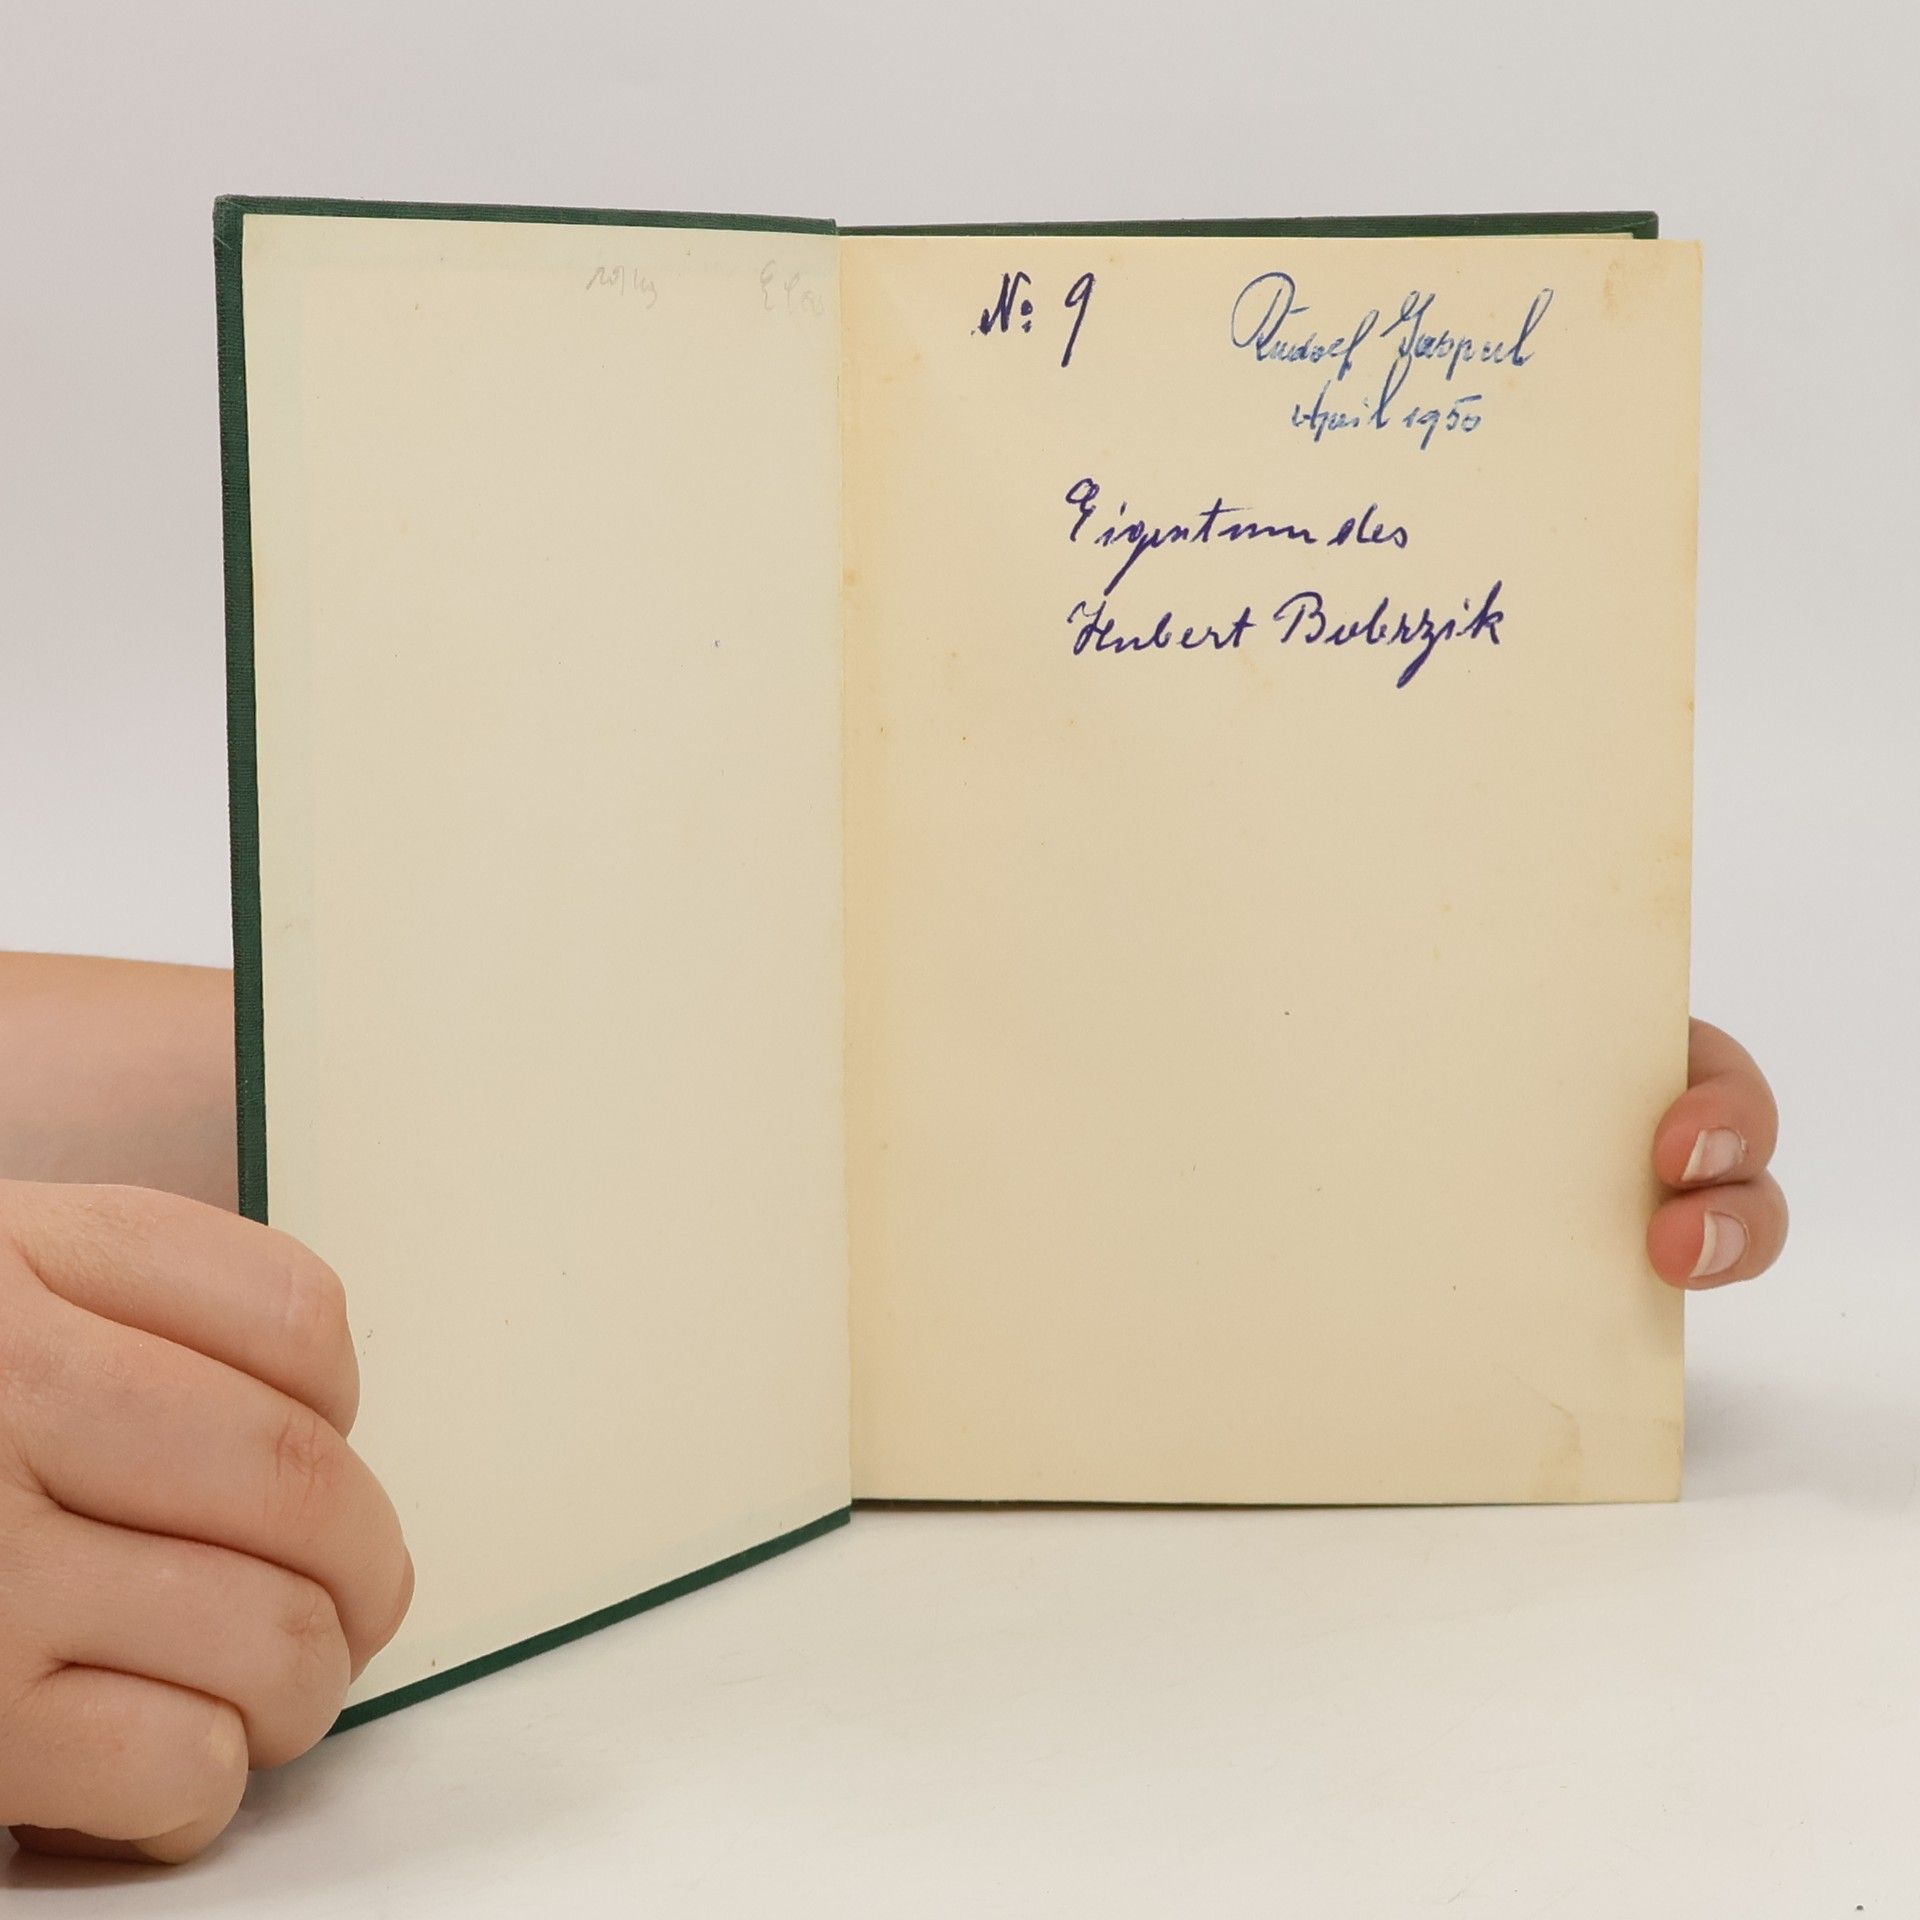 No: 9
Rudolf
April 1950
Eigentum des
Hubert Bobrzik